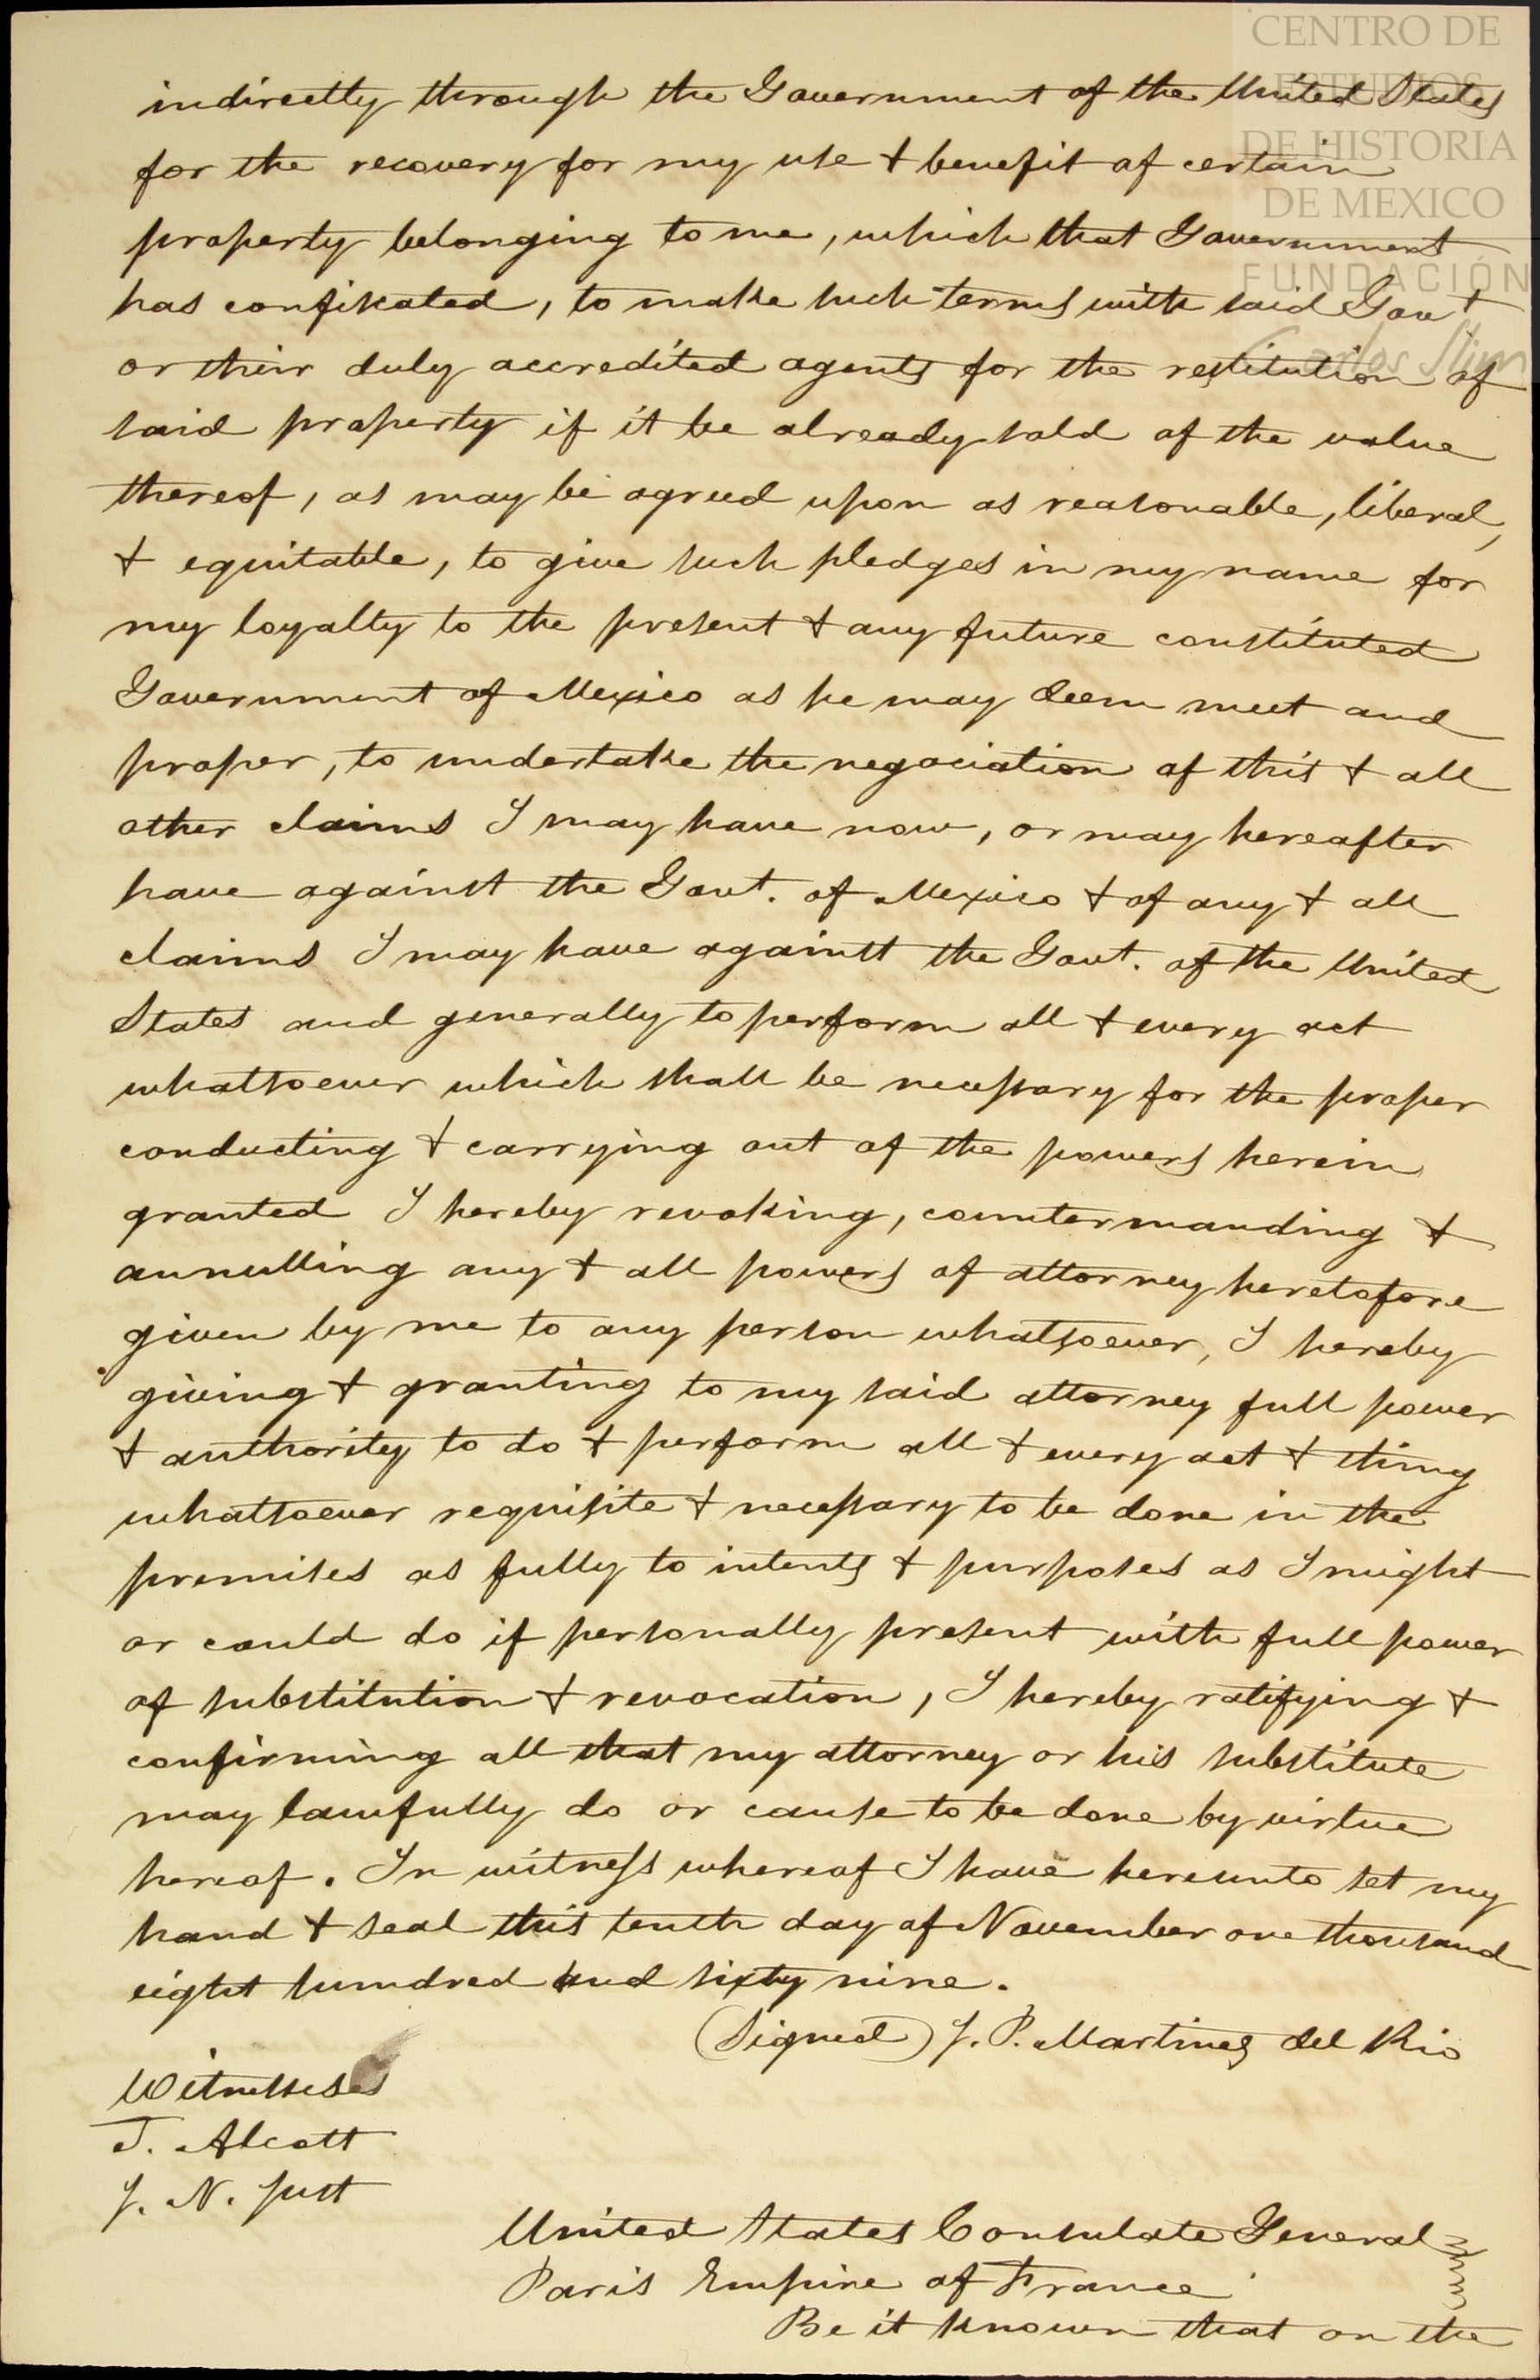 CENTRO DE
ESTUDIOS
DE HISTORIA
DE MEXICO
FUNDACIÓN
Carlos Slim
indirectly through the Government of the United States
for the recovery for my use & benefit of certain
property belonging to me, which that Government
has confiskated, to make such terms with said Govt
or their duly accredited agents for the restitution of
said property if it be already sold of the value
thereof, as may be agreed upon as reasonable, liberal,
& equitable, to give such pledges in my name for
my loyalty to the present & any future constituted
Government of Mexico as he may deem meet and
proper, to undertake the negociation of this & all
other claims I may have now, or may hereafter
have against the Govt. of Mexico & of any & all
claims I may have against the Govt. of the United
States and generally to perform all & every act
whatsoever which shall be necessary for the proper
conducting & carrying out of the powers herein
granted I hereby revoking, countermanding &
annulling any & all powers of attorney heretofore
given by me to any person whatsoever, I hereby
giving & granting to my said attorney full power
& authority to do & perform all & every act & thing
whatsoever requisite & necessary to be done in the
premises as fully to intents & purposes as I might
or could do if personally present with full power
of substitution & revocation, I hereby ratifying &
confirming all that my attorney or his substitute
may lawfully do or cause to be done by virtue
hereof. In witness whereof I have hereunto set my
hand & seal this tenth day of November one thousand
eight hundred and sixty nine.
(Signed) J. P. Martinez del Rio
Witnesses
J. Alcott
J. N. Just
United States Consulate General
Paris Empire of France
Be it known that on the